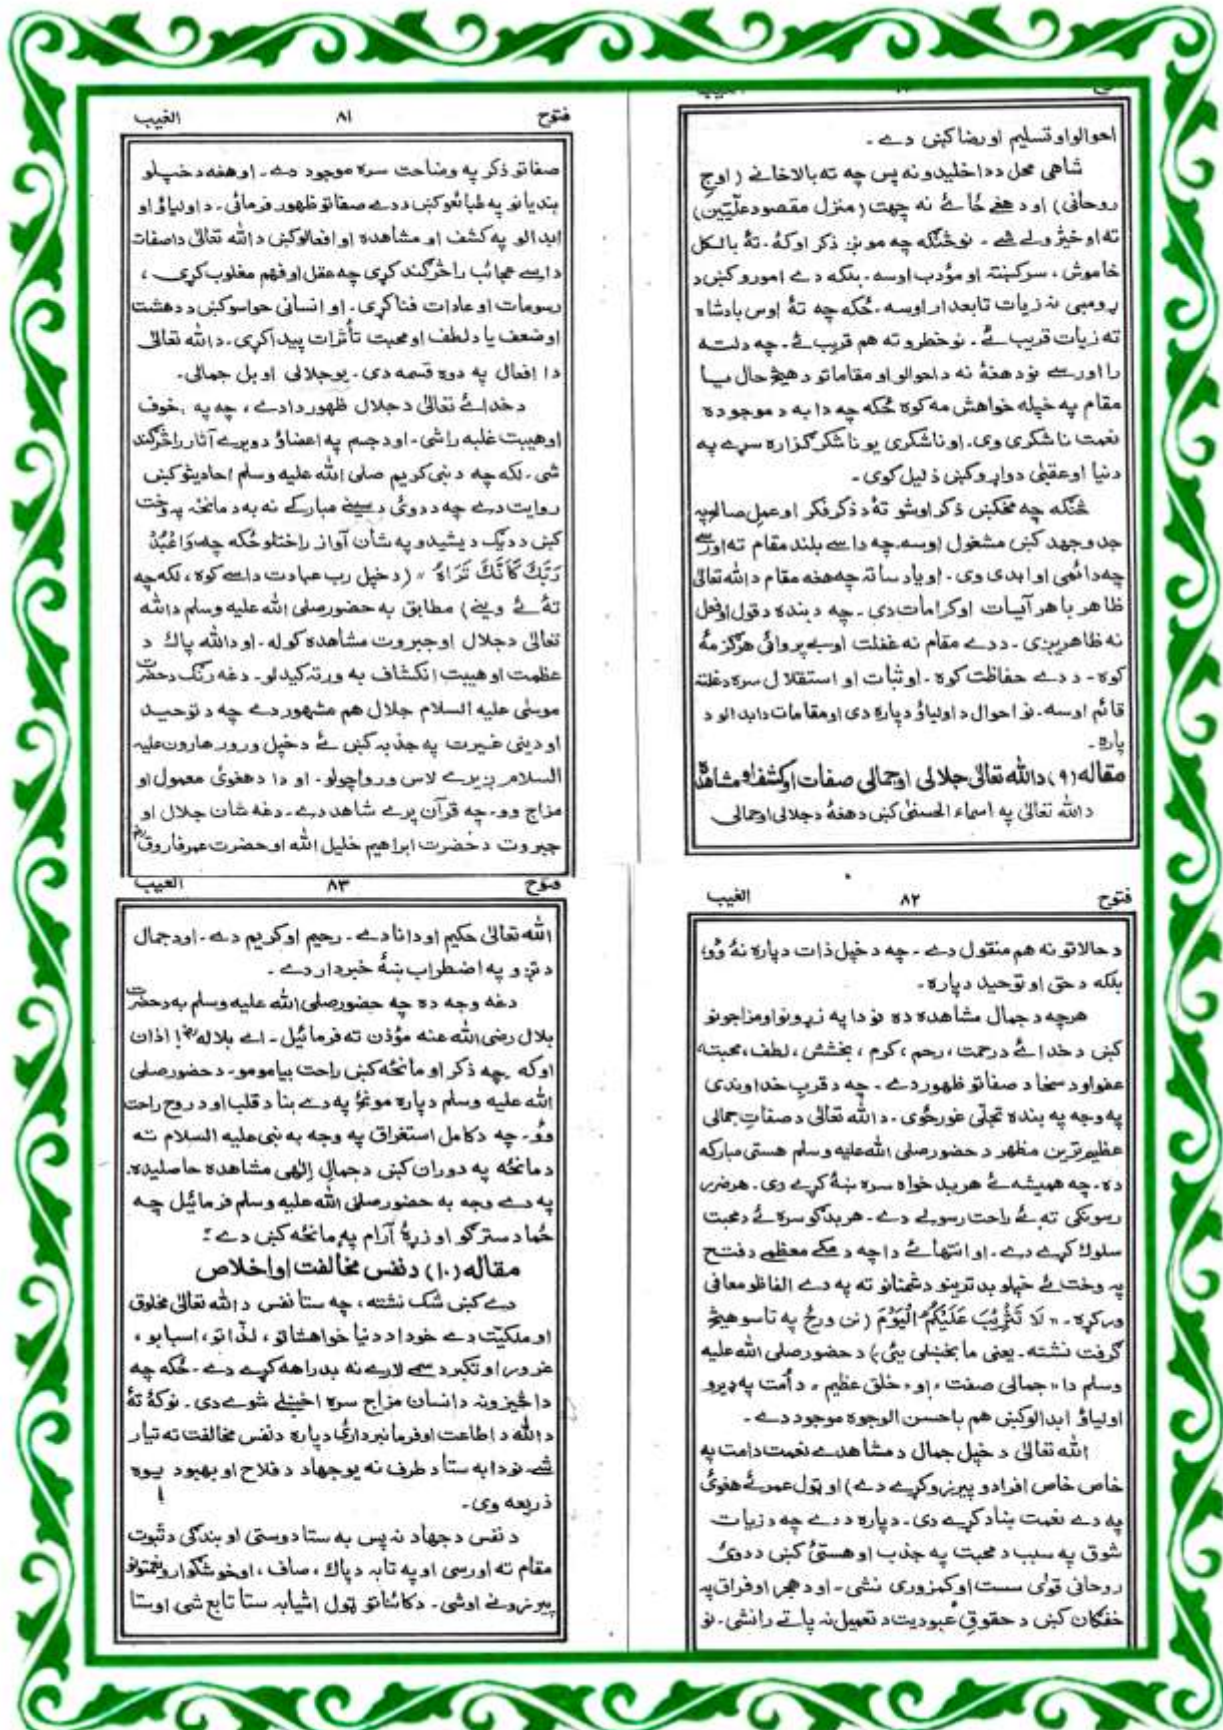 احوالواو تسليم اورضاکښ دے ۔
شاهی محل ددا خلیدونه پس چه ته بالاخانے (اوج
روحانی) اود هغے ځائے نه چهت (منزل مقصود علّیّین)
ته اوخیژولے شے ۔ نوڅنګه چه مونږ ذکر اوکهٔ ۔ تهٔ بالکل
خاموش، سرکښته او مؤدب اوسه ۔ بلکه دے امورو کښ د
ړومبی نه زیات تابعدار اوسه ۔ ځکه چه تهٔ اوس بادشاه
ته زیات قریب ئے ۔ نوخطرو ته هم قریب ئے ۔ چه دلته
را اورسے نودهغهٔ نه داحوالو او مقاماتو د هیڅ حال یا
مقام په خپله خواهش مه کوه ځکه چه دا به د موجوده
نعمت ناشکری وی ۔ اوناشکری یو ناشکرګزاره سړے په
دنیا اوعقبیٰ دواړوکښ ذلیل کوی ۔
څنګه چه مخکښ ذکر اوشو تهٔ د ذکر فکر او عمل صالح په
جدوجهد کښ مشغول اوسه ۔ چه داسے بلند مقام ته اورسے
چه دائمی اوابدی وی ۔ اویاد ساته چه هغه مقام دالله تعالیٰ
ظاهر باهر آیات اوکرامات دی ۔ چه د بنده د قول اوفعل
نه ظاهریږی ۔ ددے مقام نه غفلت اوبے پروائی هرګز مهٔ
کوه ۔ ددے حفاظت کوه ۔ اوثبات او استقلال سره دغلته
قائم اوسه ۔ نو احوال د اولیاؤ دپاره دی اومقامات دابدالو د
پاره ۔
مقاله (٩) دالله تعالیٰ جلالی اوجمالی صفات اوکشف او مشاهده
دالله تعالیٰ په اسماء الحسنیٰ کښ دهغهٔ دجلالی اوجمالی
فتوح ٨١ الغيب
صفاتو ذکر په وضاحت سره موجود دے ۔ اوهغه دخپلو
بندیانو په طبائعوکښ ددے صفاتو ظهور فرمائی ۔ د اولیاؤ او
ابدالو په کشف او مشاهده او افعالوکښ دالله تعالیٰ داصفات
داسے عجائب راڅرګند کړی چه عقل اوفهم مغلوب کړی ،
رسومات اوعادات فنا کړی ۔ او انسانی حواسوکښ د دهشت
اوضعف یا دلطف اومحبت تأثرات پیدا کړی ۔ دالله تعالیٰ
دا افعال په دوه قسمه دی ۔ یوجلالی اوبل جمالی ۔
دخدائے تعالیٰ دجلال ظهور دادے ، چه په خوف
اوهیبت غلبه راشی ۔ اودجسم په اعضاؤ دویرے آثار راڅرګند
شی ۔ لکه چه دنبی کریم صلی الله علیه وسلم احادیثوکښ
روایت دے چه ددوئ دسینے مبارکے نه به دمانځه په وخت
کښ ددیګ دیشیدو په شان آواز راختلو ځکه چه وَاعْبُدْ
رَبَّكَ كَاَنَّكَ تَرَاهُ » (دخپل رب عبادت داسے کوه ، لکه چه
تهٔ ئے وینے) مطابق به حضورصلی الله علیه وسلم دالله
تعالیٰ دجلال اوجبروت مشاهده کوله ۔ اودالله پاک د
عظمت اوهیبت انکشاف به ورته کیدلو ۔ دغه رنګ دحضرت
موسیٰ علیه السلام جلال هم مشهور دے چه د توحید
اودینی غیرت په جذبه کښ ئے دخپل ورور هارون علیه
السلام ږیرے لاس ورواچولو ۔ او دا دهغوئ معمول او
مزاج وو ۔ چه قرآن پرے شاهد دے ۔ دغه شان جلال او
جبروت دحضرت ابراهیم خلیل الله اوحضرت عمرفاروقؓ
فتوح ٨٢ الغيب
دحالاتو نه هم منقول دے ۔ چه دخپل ذات دپاره نهٔ وُو ،
بلکه دحق او توحید دپاره ۔
هرچه دجمال مشاهده ده نو دا په زړونو اومزاجونو
کښ دخدائے درحمت ، رحم ، کرم ، بخشش ، لطف ، محبت
عفو اود سخا د صفاتو ظهور دے ۔ چه دقرب خداوندی
په وجه په بنده تجلّی غورځوی ۔ دالله تعالیٰ دصفاتِ جمالی
عظیم ترین مظهر د حضورصلی الله علیه وسلم هستی مبارکه
ده ۔ چه همیشه ئے هربدخواه سره ښهٔ کړے وی ۔ هرضرر
رسونکی ته ئے راحت رسولے دے ۔ هر بدګو سره ئے دمحبت
سلوک کړے دے ۔ اوانتهائے داچه د مکے معظمے دفتح
په وخت ئے خپلو بدترینو دشمنانو ته په دے الفاظو معافی
ورکړه ۔ « لَا تَثْرِيْبَ عَلَيْكُمُ الْيَوْمَ (نن ورځ په تاسو هیڅ
ګرفت نشته ۔ یعنی ما بخښلی یئی) د حضورصلی الله علیه
وسلم دا «جمالی صفت» او «خلق عظیم» داُمت په ډیرو
اولیاؤ ابدالوکښ هم باحسن الوجوه موجود دے ۔
الله تعالیٰ دخپل جمال دمشاهدے نعمت دامت په
خاص خاص افرادو پیرزوکړے دے) او ټول عمر ئے هغوئ
په دے نعمت ښاد کړے دی ۔ دپاره ددے چه دزیات
شوق په سبب دمحبت په جذب اوهستئ کښ ددوئ
روحانی قوٰی سست اوکمزوری نشی ۔ اودهجر اوفراق په
خفګان کښ د حقوقِ عبودیت د تعمیل نه پاتے رانشی ۔ نو
فتوح ٨٣ الغيب
الله تعالیٰ حکیم اودانا دے ۔ رحیم اوکریم دے ۔ اودجمال
د تږو په اضطراب ښهٔ خبردار دے ۔
دغه وجه ده چه حضورصلی الله علیه وسلم به دحضرت
بلال رضی الله عنه مؤذن ته فرمائیل ۔ اے بلاله ؓ! اذان
اوکه چه ذکر او مانځه کښ راحت بیامومو ۔ دحضورصلی
الله علیه وسلم دپاره مونځ په دے بنا دقلب اود روح راحت
وُو ۔ چه دکامل استغراق په وجه به نبی علیه السلام ته
دمانځه په دوران کښ دجمالِ الٰهی مشاهده حاصلیده ۔
په دے وجه به حضورصلی الله علیه وسلم فرمائیل چه
ځما دسترګو او زړهٔ آرام په مانځه کښ دے ؛
مقاله (١٠) دنفس مخالفت اواخلاص
دے کښ شک نشته ، چه ستا نفس دالله تعالیٰ مخلوق
اوملکیّت دے خو د دنیا خواهشاتو ، لذّاتو ، اسبابو ،
غرور او تکبر دسمے لارے نه بدراهه کړے دے ۔ ځکه چه
داڅیزونه دانسان مزاج سره اخښلے شوے دی ۔ نوکهٔ تهٔ
دالله د اطاعت اوفرمانبردارئ دپاره دنفس مخالفت ته تیار
شے نودا به ستا دطرف نه یوجهاد د فلاح او بهبود یوه
ذریعه وی ۔
دنفس دجهاد نه پس به ستا دوستی اوبندګی دثبوت
مقام ته اورسی اوپه تا به دپاک ، صاف ، اوخوشګوارو نعمتونو
پیرزونے اوشی ۔ دکائناتو ټول اشیا به ستا تابع شی اوستا